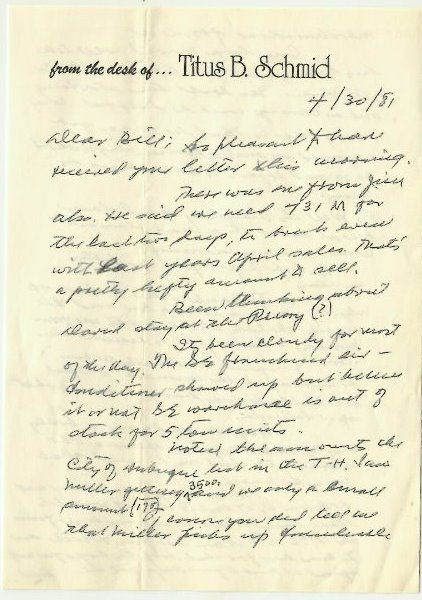 from the desk of... Titus B. Schmid
4/30/81
Dear Bill; So pleasant to have
received your letter this morning.
There was one from Jim
also. He said we need 431 M for
the last two days, to break even
with last years April sales. That's
a pretty hefty amount to sell.
Been thinking about
David stay at the Priory (?)
Its been cloudy for most
of the day. The GE air-
conditioner showed up but believe
it or not GE warehouse is out of
stock for 5 ton units.
Noted the amounts the
City of Dubuque list in the T-H. I saw
Miller getting 3500. and we only a small
amount (170) of course you did tell me
that Miller picks up